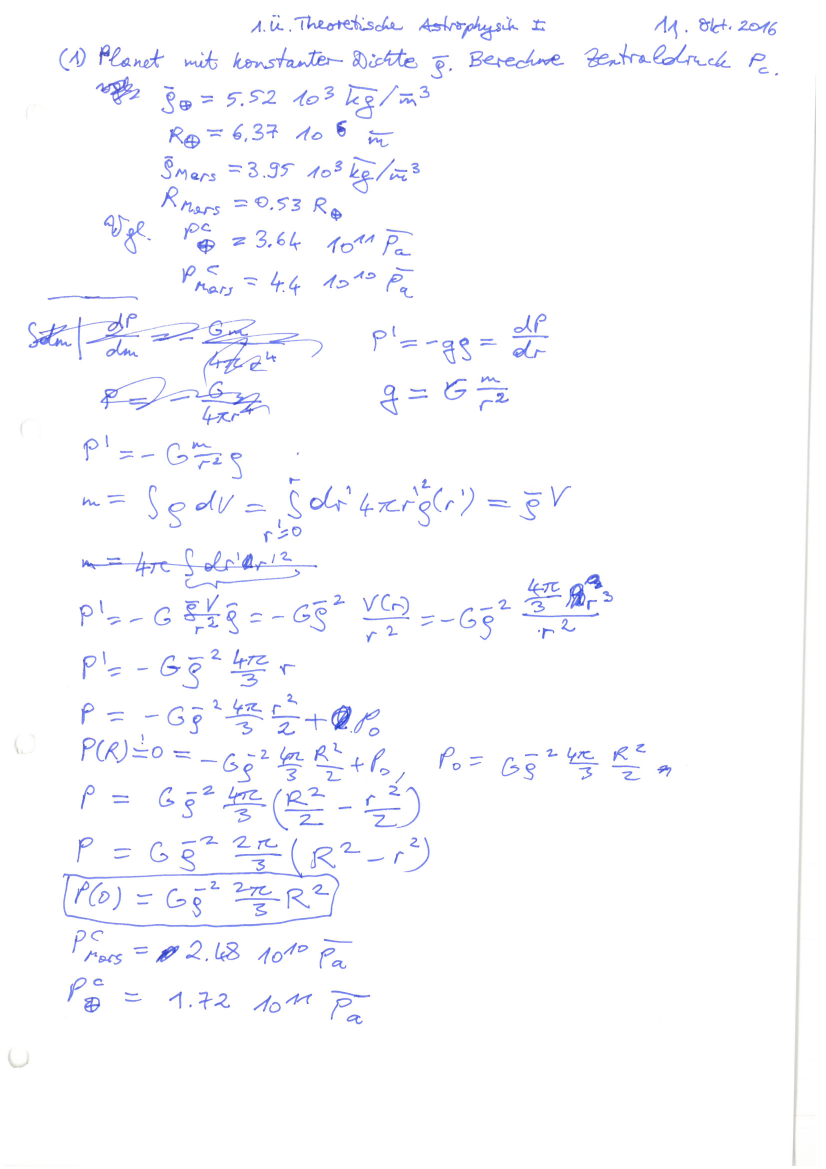 1. Ü. Theoretische Astrophysik I 11. Okt. 2016
(1) Planet mit konstanter Dichte ρ̄. Berechne Zentraldruck P_c.
ρ̄_⊕ = 5.52 10^3 kg/m^3
R_⊕ = 6.37 10^6 m
ρ̄_Mars = 3.95 10^3 kg/m^3
R_Mars = 0.53 R_⊕
Vgl. P^c_⊕ = 3.64 10^11 Pa
P^c_Mars = 4.4 10^10 Pa
∫dm | dP/dm = - Gm/4πr^4 P' = -gρ = dP/dr
P = - G/4πr^4 g = G m/r^2
P' = - G m/r^2 ρ
m = ∫ρ dV = ∫_{r'=0}^{r} dr' 4πr'^2 ρ(r') = ρ̄ V
m = 4π ∫ dr' r'^2
P' = - G ρ̄V/r^2 ρ̄ = - Gρ̄^2 V(r)/r^2 = - Gρ̄^2 (4π/3 r^3)/r^2
P' = - Gρ̄^2 4π/3 r
P = - Gρ̄^2 4π/3 r^2/2 + P_0
P(R) =! 0 = - Gρ̄^2 4π/3 R^2/2 + P_0, P_0 = Gρ̄^2 4π/3 R^2/2
P = Gρ̄^2 4π/3 (R^2/2 - r^2/2)
P = Gρ̄^2 2π/3 (R^2 - r^2)
P(0) = Gρ̄^2 2π/3 R^2
P^c_Mars = 2.48 10^10 Pa
P^c_⊕ = 1.72 10^11 Pa